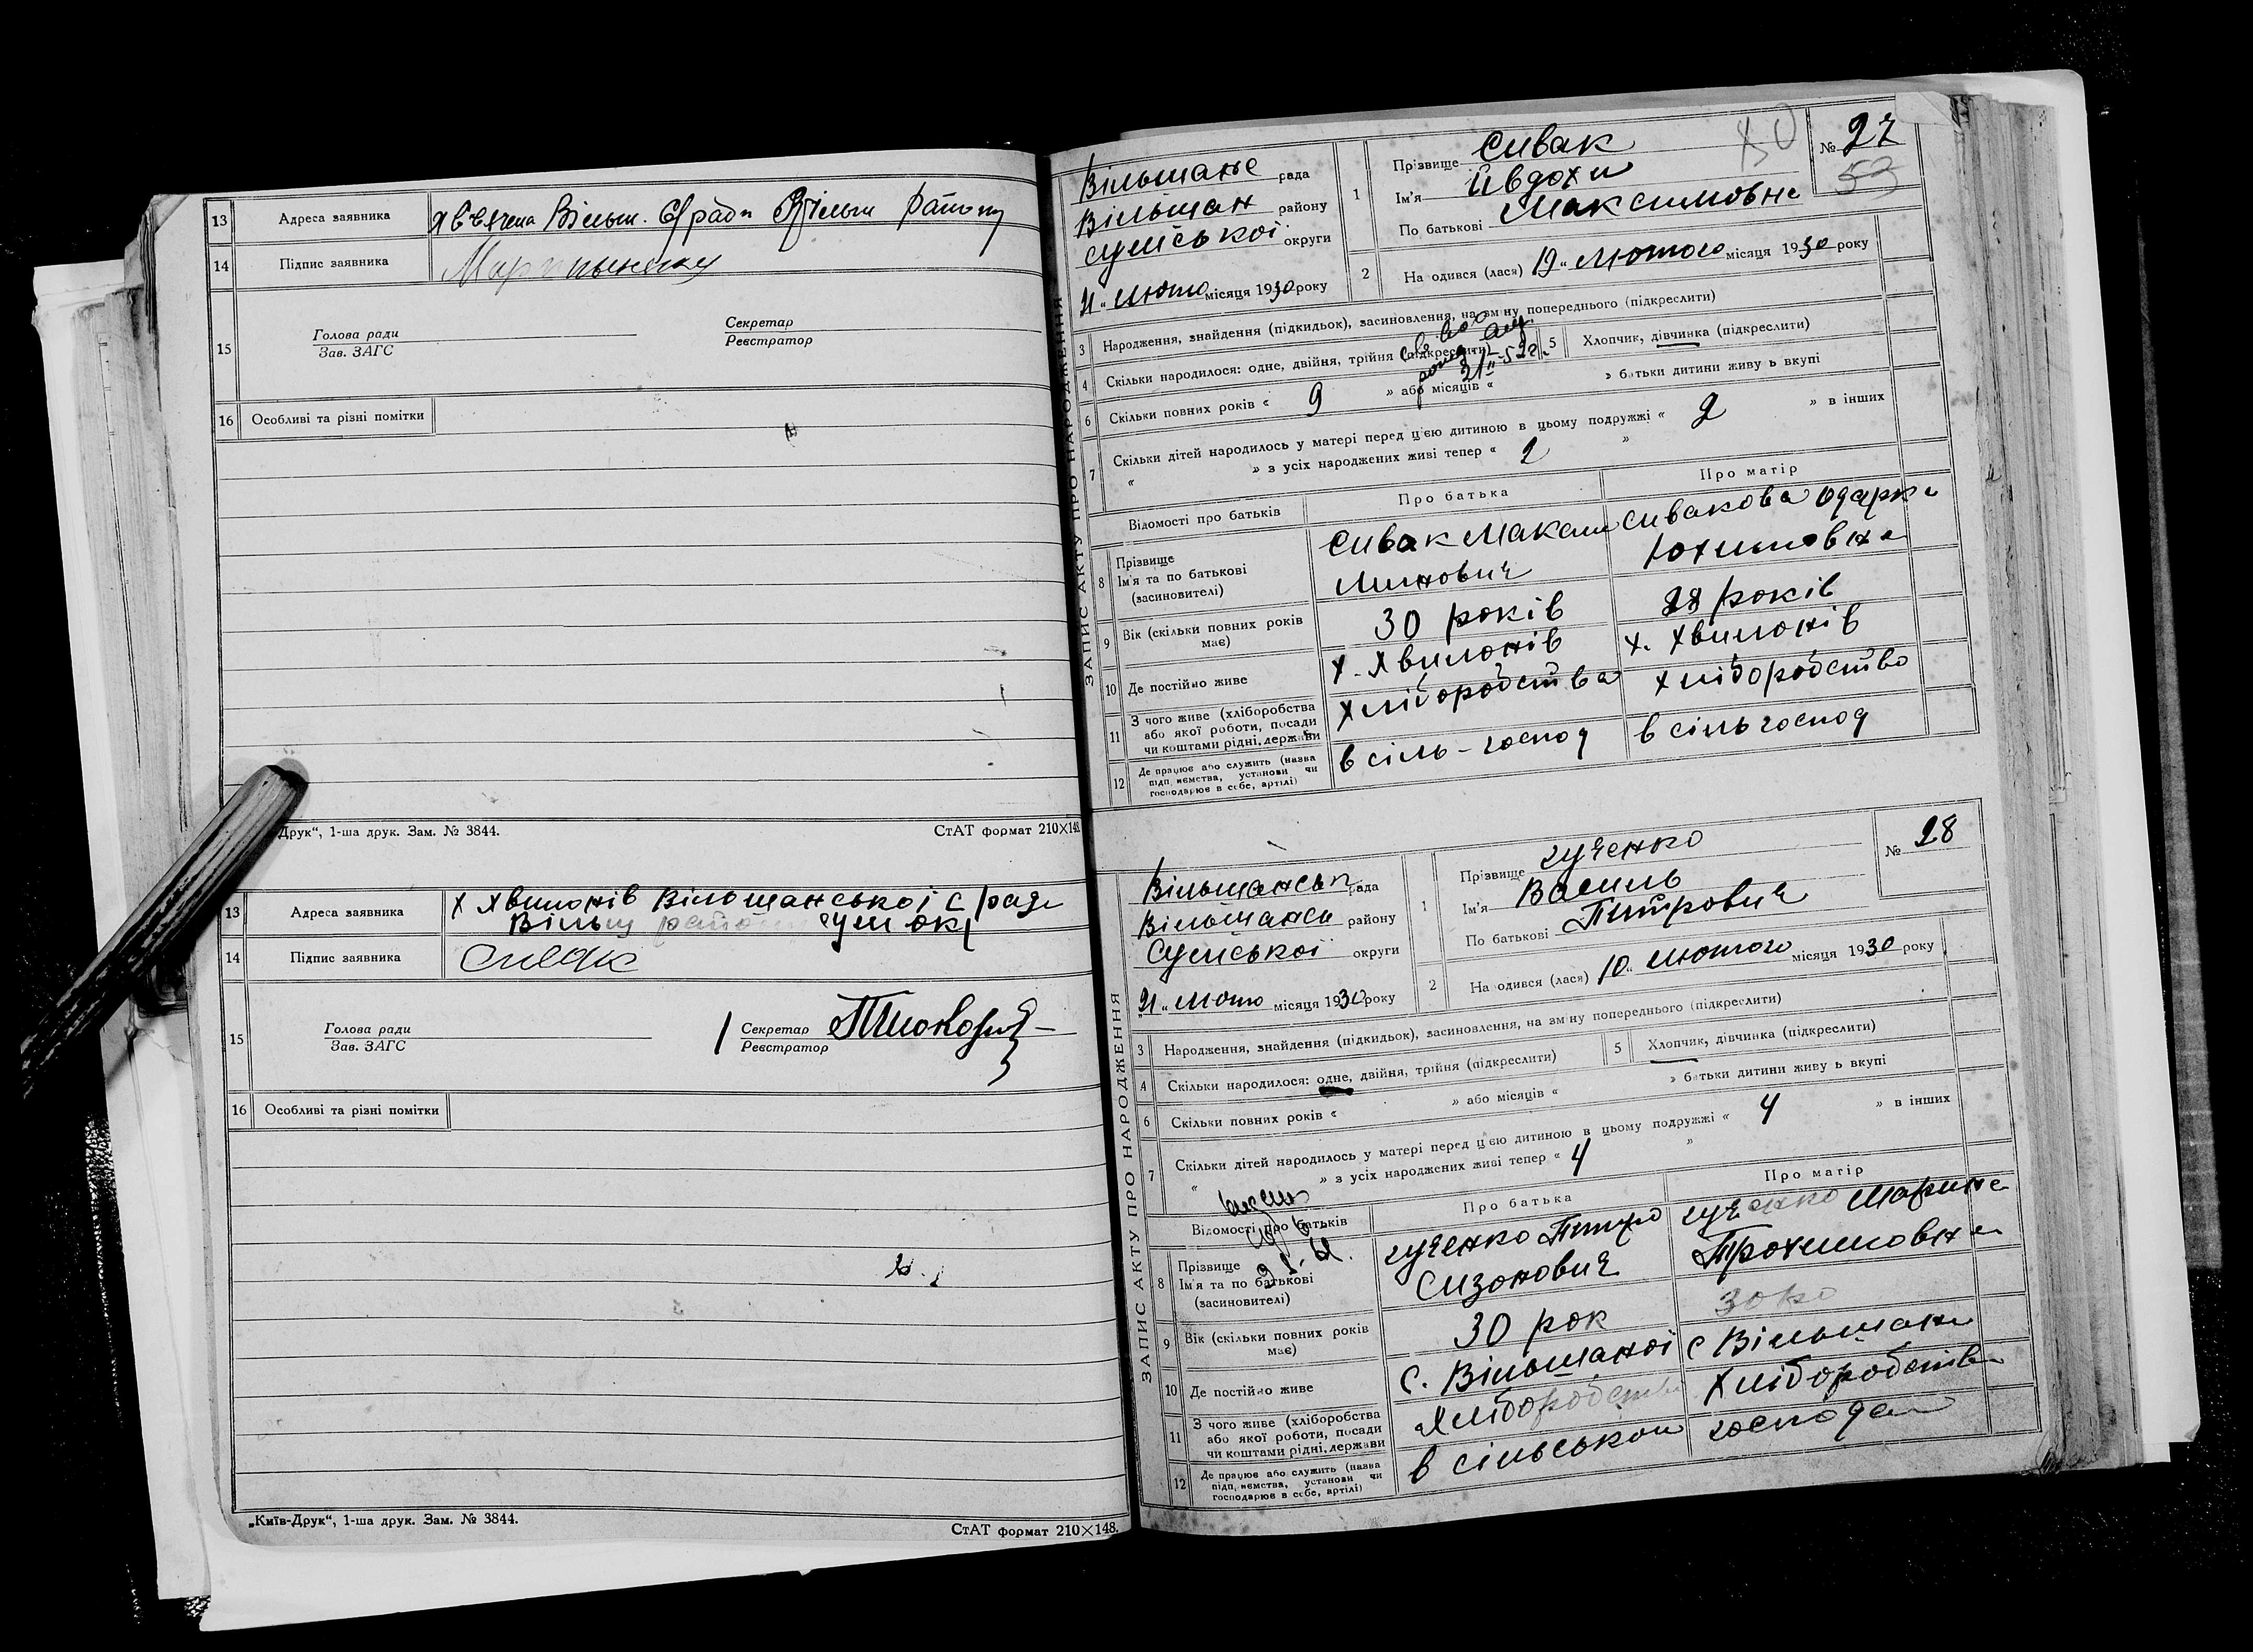 13 Адреса заявника Вільш. С/ради Вільш Району
14 Підпис заявника
15 Голова ради Секретар
Зав. ЗАГС Реєстратор
16 Особливі та різні помітки
Друк“, 1-ша друк. Зам. № 3844. СтАТ формат 210×148
13 Адреса заявника х Хвилонів Вільшанської с рад
Вільш район Сум окр
14 Підпис заявника Сивак
15 Голова ради Секретар
Зав. ЗАГС Реєстратор
16 Особливі та різні помітки
„Київ-Друк“, 1-ша друк. Зам. № 3844. СтАТ формат 210×148.
ЗАПИС АКТУ ПРО НАРОДЖЕННЯ
Вільшане рада
Вільшан району
Сумської округи
21 „ люто місяця 1930 року
1 Прізвище Сивак
Ім'я Йвдохи
По батькові Максимовна
№ 27
53
2 На одився (лася) 19 „ Лютого місяця 1930 року
3 Народження, знайдення (підкидьок), засиновлення, на зміну попереднього (підкреслити)
4 Скільки народилося: одне, двійня, трійня (підкреслити) 5 Хлопчик, дівчинка (підкреслити)
6 Скільки повних років « 9 » або місяців « » батьки дитини живу ь вкупі
7 Скільки дітей народилось у матері перед цією дитиною в цьому подружжі « 2 » в інших
« » з усіх народжених живі тепер « 2 »
Відомості про батьків Про батька Про матір
8 Прізвище Ім'я та по батькові (засиновителі) Сивак Максим Сивакова Одарка
Минович Юхимовна
9 Вік (скільки повних років має) 30 років 28 років
10 Де постійно живе х. Хвилонів х. Хвилонів
11 З чого живе (хліборобства або якої роботи, посади чи коштами рідні, держави Хліборобства хліборобство
12 Де працює або служить (назва підп, иємства, установи чи господарює в себе, артілі) в сіль-господ в сільгоспод
ЗАПИС АКТУ ПРО НАРОДЖЕННЯ
Вільшанськ рада
Вільшансь району
Сумської округи
21 „ люто місяця 1930 року
1 Прізвище Гученко
Ім'я Василь
По батькові Питрович
№ 28
2 На одився (лася) 10 „ лютого місяця 1930 року
3 Народження, знайдення (підкидьок), засиновлення, на зміну попереднього (підкреслити)
4 Скільки народилося: одне, двійня, трійня (підкреслити) 5 Хлопчик, дівчинка (підкреслити)
6 Скільки повних років « » або місяців « » батьки дитини живу ь вкупі
7 Скільки дітей народилось у матері перед цією дитиною в цьому подружжі « 4 » в інших
« » з усіх народжених живі тепер « 4 »
Відомості про батьків Про батька Про матір
8 Прізвище Ім'я та по батькові (засиновителі) Гученко Питро Гученко Марина
Сизонович Трохимовна
9 Вік (скільки повних років має) 30 рок 30 ро
10 Де постійно живе с. Вільшаної с Вільшани
11 З чого живе (хліборобства або якої роботи, посади чи коштами рідні, держави Хліборобств Хліборобств
12 Де працює або служить (назва підп, иємства, установи чи господарює в себе, артілі) в сільськом господа